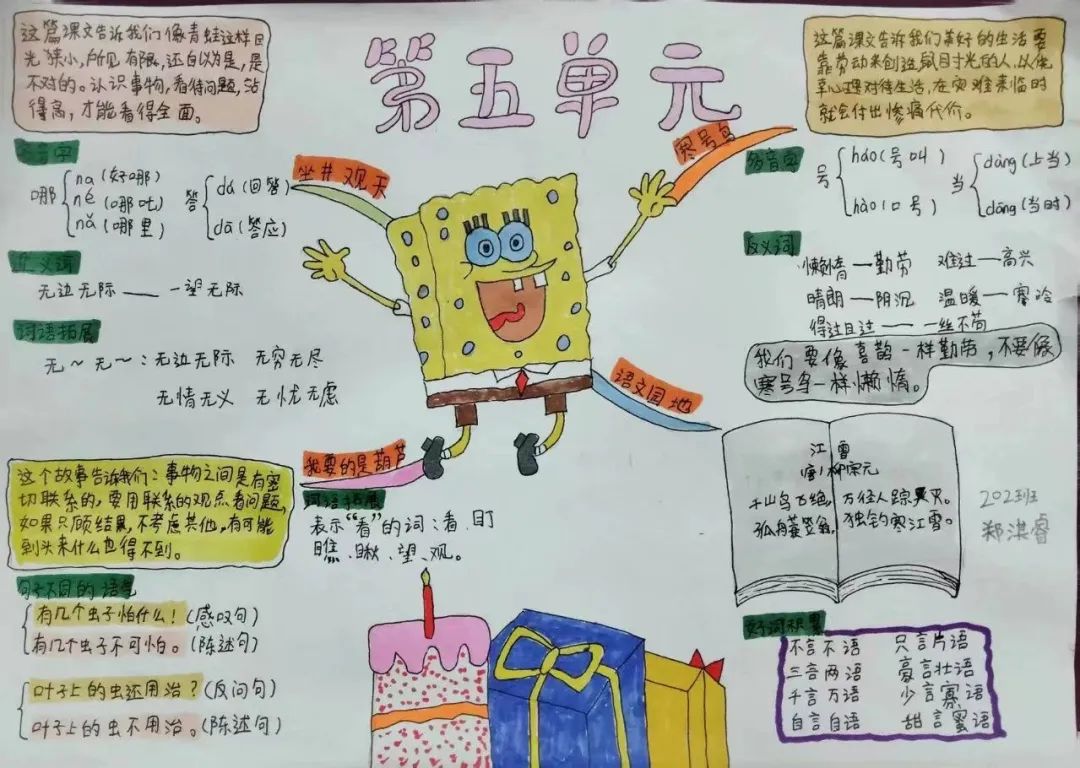 第五单元
这篇课文告诉我们像青蛙这样目
光狭小,所见有限,还自以为是,是
不对的。认识事物,看待问题,站
得高,才能看得全面。
多音字
哪
na(好哪)
né(哪吒)
nǎ(哪里)
答
dá(回答)
dā(答应)
近义词
无边无际——一望无际
词语拓展
无~无~:无边无际 无穷无尽
无情无义 无忧无虑
坐井观天
寒号鸟
语文园地
我要的是葫芦
这篇课文告诉我们美好的生活要
靠劳动来创造,鼠目寸光的人,以侥
幸心理对待生活,在灾难来临时
就会付出惨痛代价。
多音字
号
háo(号叫)
hào(口号)
当
dàng(上当)
dāng(当时)
反义词
懒惰—勤劳 难过—高兴
晴朗—阴沉 温暖—寒冷
得过且过——一丝不苟
我们要像喜鹊一样勤劳,不要像
寒号鸟一样懒惰。
这个故事告诉我们:事物之间是有密
切联系的,要用联系的观点看问题,
如果只顾结果,不考虑其他,有可能
到头来什么也得不到。
句子不同的语气
有几个虫子怕什么!(感叹句)
有几个虫子不可怕。(陈述句)
叶子上的虫还用治?(反问句)
叶子上的虫不用治。(陈述句)
词语拓展
表示“看”的词:看、盯
瞧、瞅、望、观。
江雪
唐 柳宗元
千山鸟飞绝,万径人踪灭。
孤舟蓑笠翁,独钓寒江雪。
202班
郑淇睿
好词积累
不言不语 只言片语
三言两语 豪言壮语
千言万语 少言寡语
自言自语 甜言蜜语